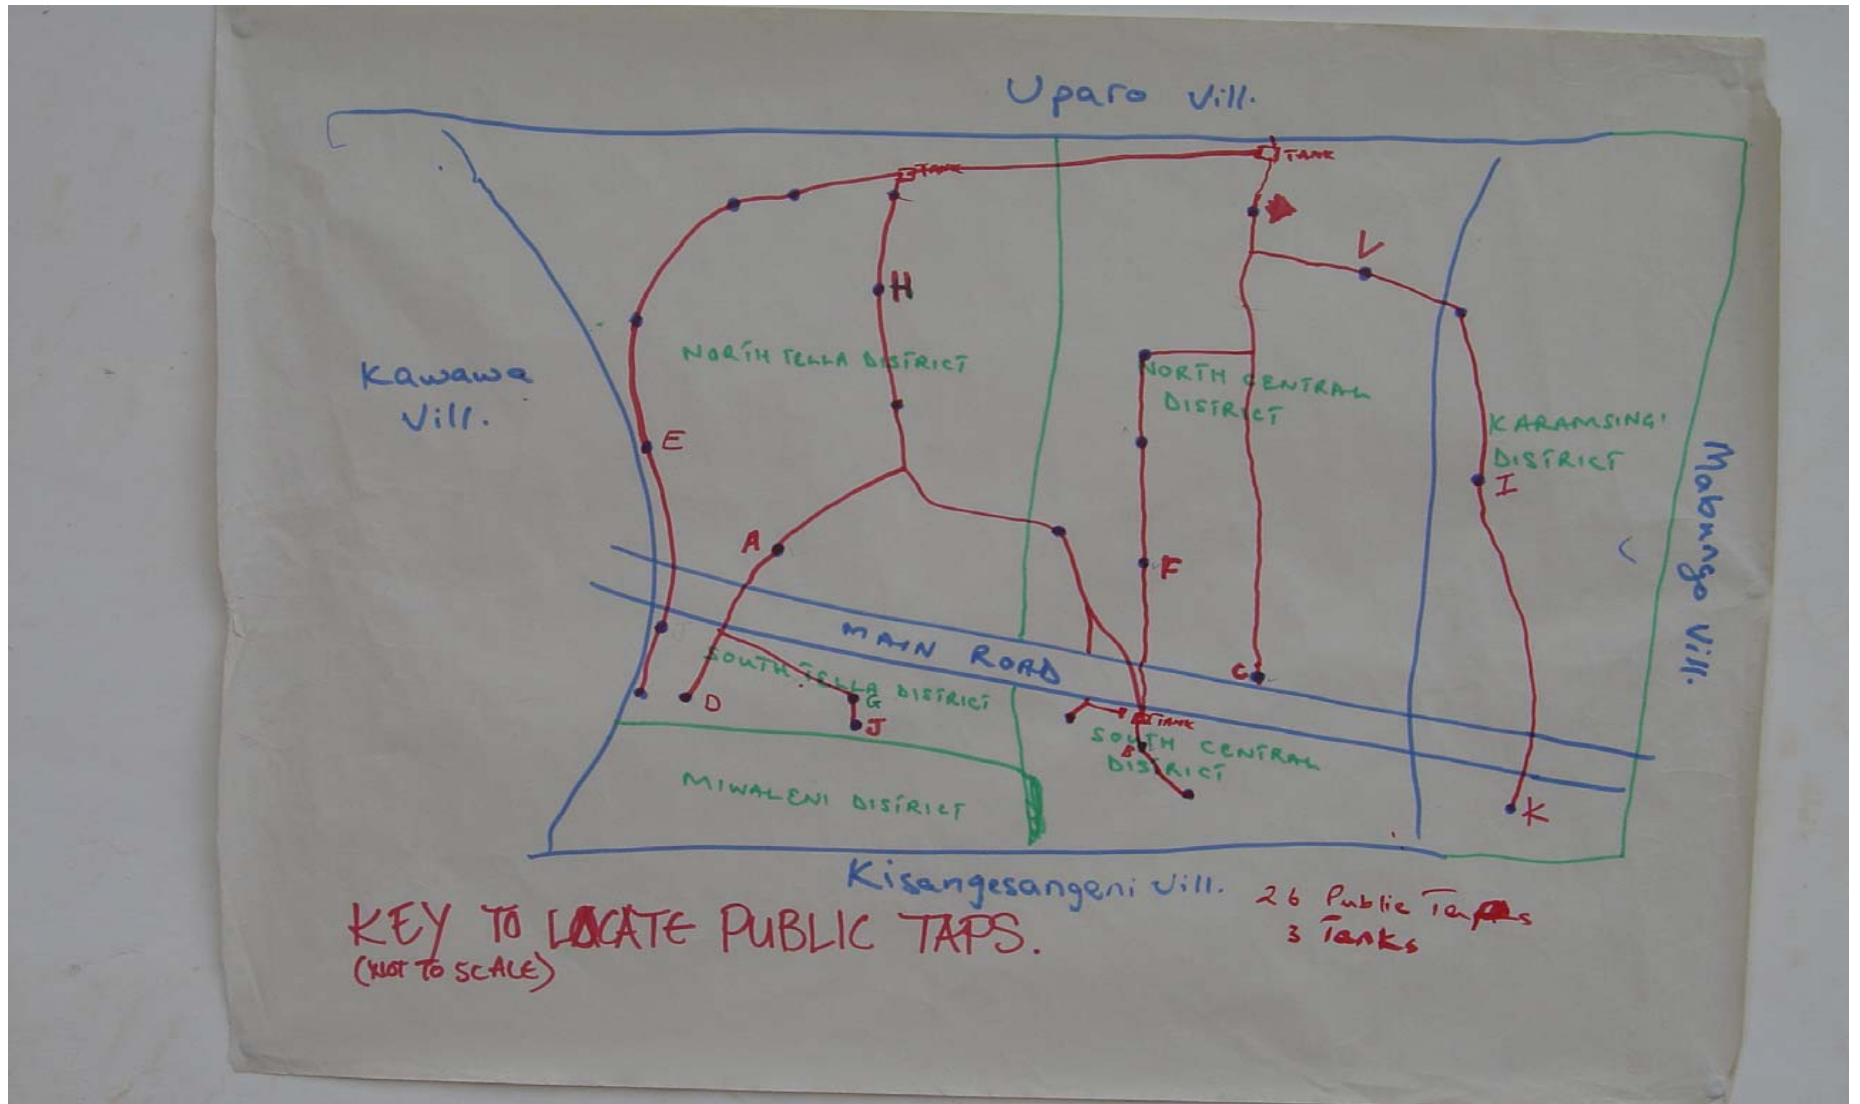 Uparo Vill.
TANK
TANK
V
H
NORTH TELLA DISTRICT
Kawawa
Vill.
NORTH CENTRAL
DISTRICT
E
KARAMSING'
DISTRICT
I
Mabungo Vill.
A
F
MAIN ROAD
C
SOUTH TELLA DISTRICT
D
G
J
TANK
SOUTH CENTRAL
DISTRICT
B
MIWALENI DISTRICT
K
Kisangesangeni Vill.
26 Public Taps
3 Tanks
KEY TO LOCATE PUBLIC TAPS.
(NOT TO SCALE)